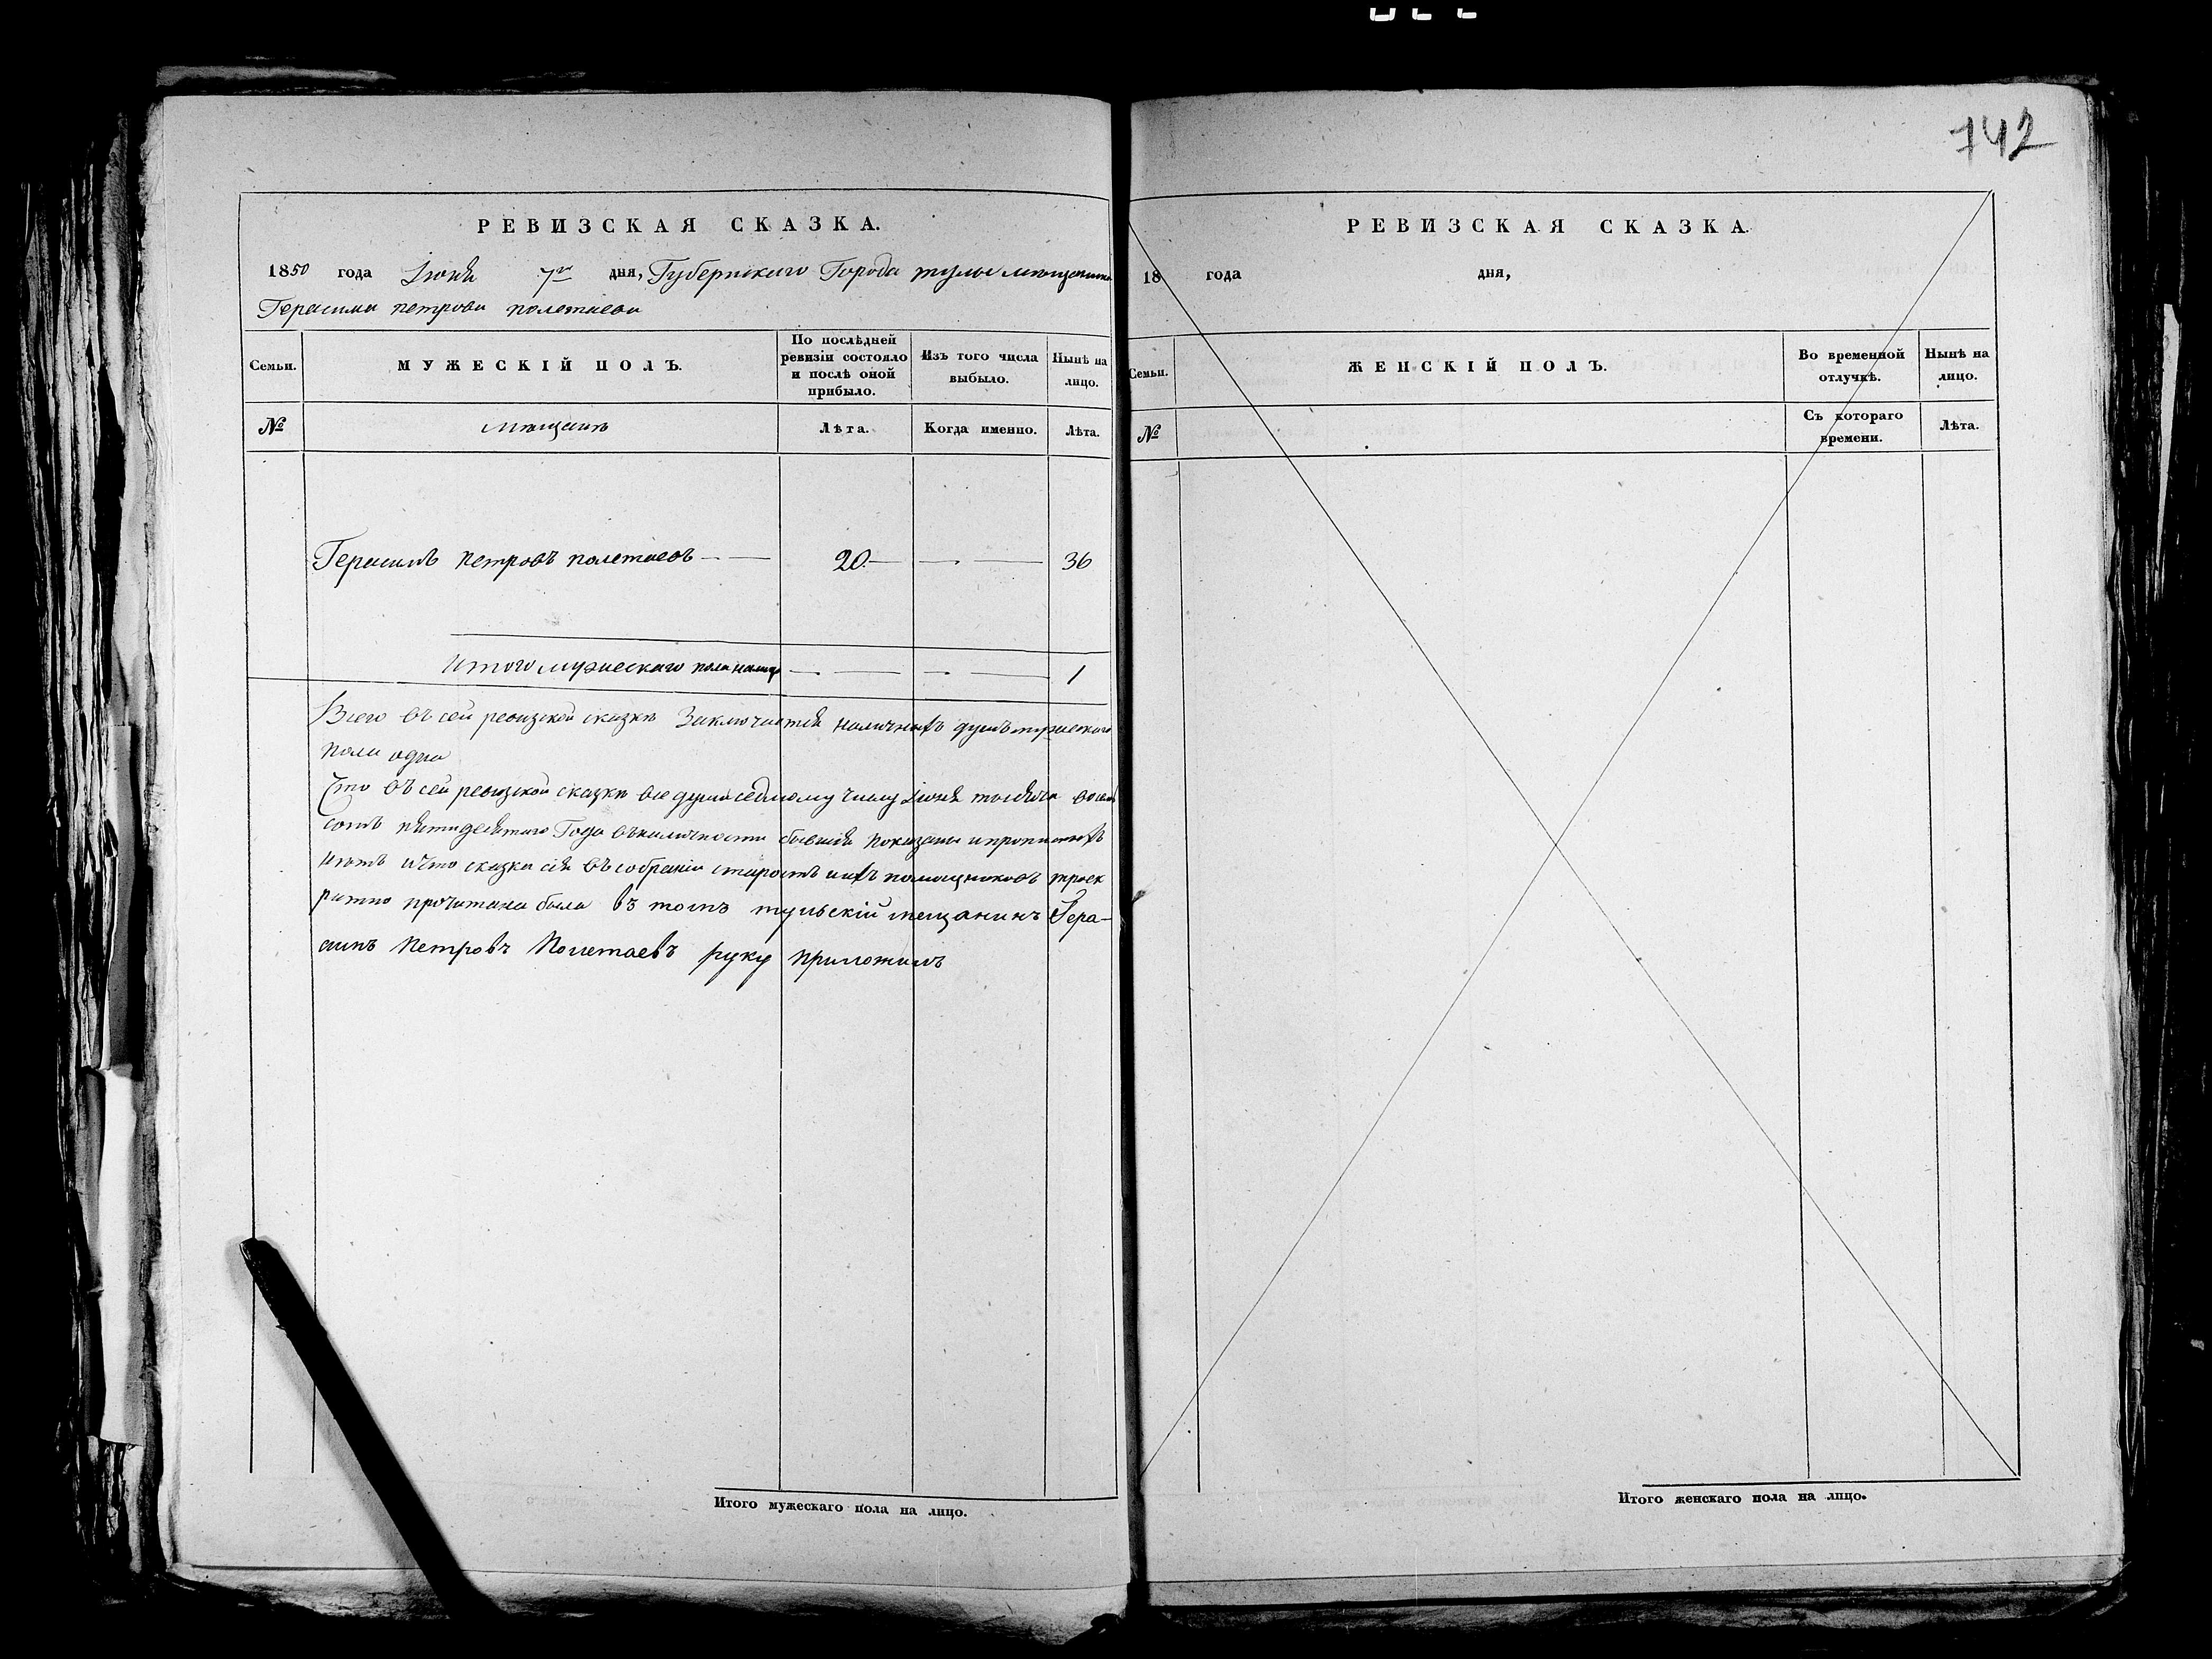 742
РЕВИЗСКАЯ СКАЗКА.
1850 года Іюня 7го дня, Губернскаго Города тулы мѣщанина
Герасима петрова полетаева
Семьи.
МУЖЕСКІЙ ПОЛЪ.
По послѣдней
ревизіи состояло
и послѣ оной
прибыло.
Изъ того числа
выбыло.
Нынѣ на
лицо.
№
мѣщанъ
Лѣта.
Когда именно.
Лѣта.
Герасимъ петровъ полетаевъ — — 20 — — — 36
Итого мужескаго пола налицо — — — — 1
Всего въ сей ревизской сказкѣ Заключается наличныхъ душъ мужескаго
пола одна
Что въ сей ревизской сказкѣ все души седмому числу Іюня тысяча восем
сотъ пятидесятаго Года въналичности бывшія показаны ипрописныхъ
нѣтъ ичто сказка сія въсобраніи старостъ иихъ помощниковъ троек
ратно прочитана была въ томъ тульскій мещанинъ Гера-
симъ Петровъ Полетаевъ руку приложилъ
Итого мужескаго пола на лицо.
РЕВИЗСКАЯ СКАЗКА.
18 года дня,
Семьи.
ЖЕНСКІЙ ПОЛЪ.
Во временной
отлучкѣ.
Нынѣ на
лицо.
№
Съ котораго
времени.
Лѣта.
Итого женскаго пола на лицо.